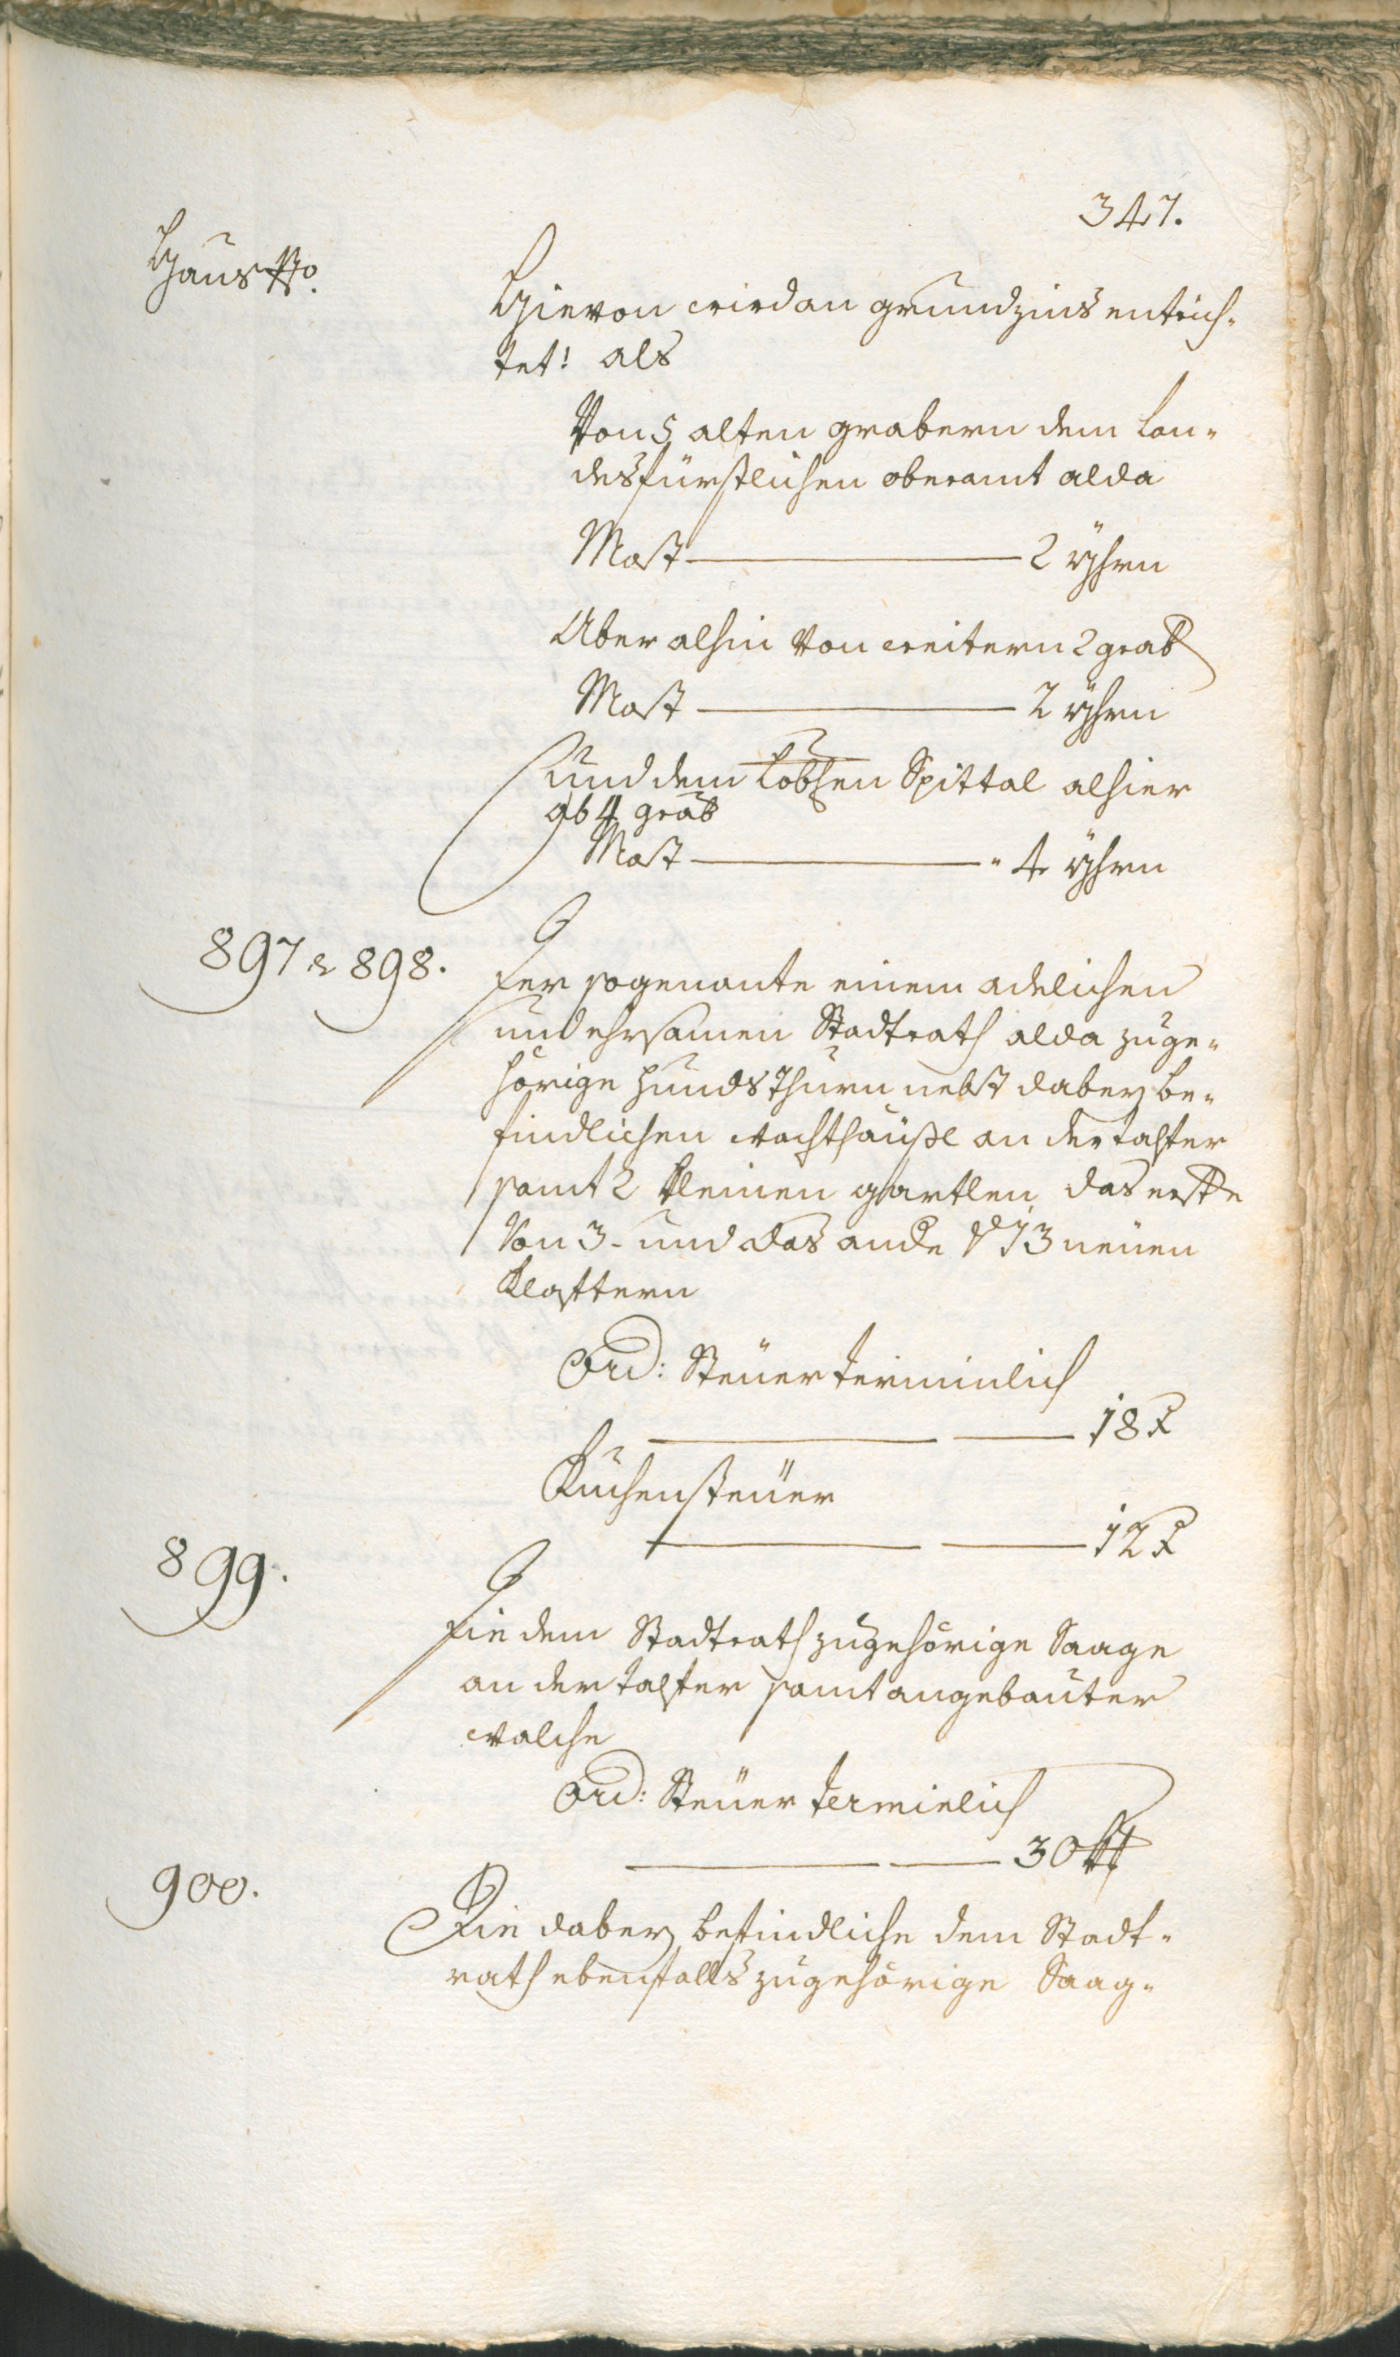 347.
Haus No.
Hievon wird an grundzins entrich-
tet! als
Von 5 alten grabern dem Lan-
desfürstlichen oberamt alda
Most — 2 Yhrn
Aber alhin von weitern 2 grab
Most — 2 Yhrn
und dem Löbhen Spittal alhier
ab 4 grab
Most — 4 Yhrn
897 & 898.
Der sogenante einem adelichen
und ehrsamen Stadtrath alda zuge-
hörige hunds Thurn nebst dabey be-
findlichen wachthäusl an der talfer
samt 2 kleinen gartlen das erste
Von 3- und das ande 13 neuen
Klaftern
Ord: Steüer terminlich
— 18 x
Kuchensteüer
— 12 x
899.
Die dem Stadtrath zugehörige Saage
an der talfer samt angebauter
walche
Ord: Steüer terminlich
— 30
900.
Die dabey befindliche dem Stadt-
rath ebenfalls zugehörige Saag-